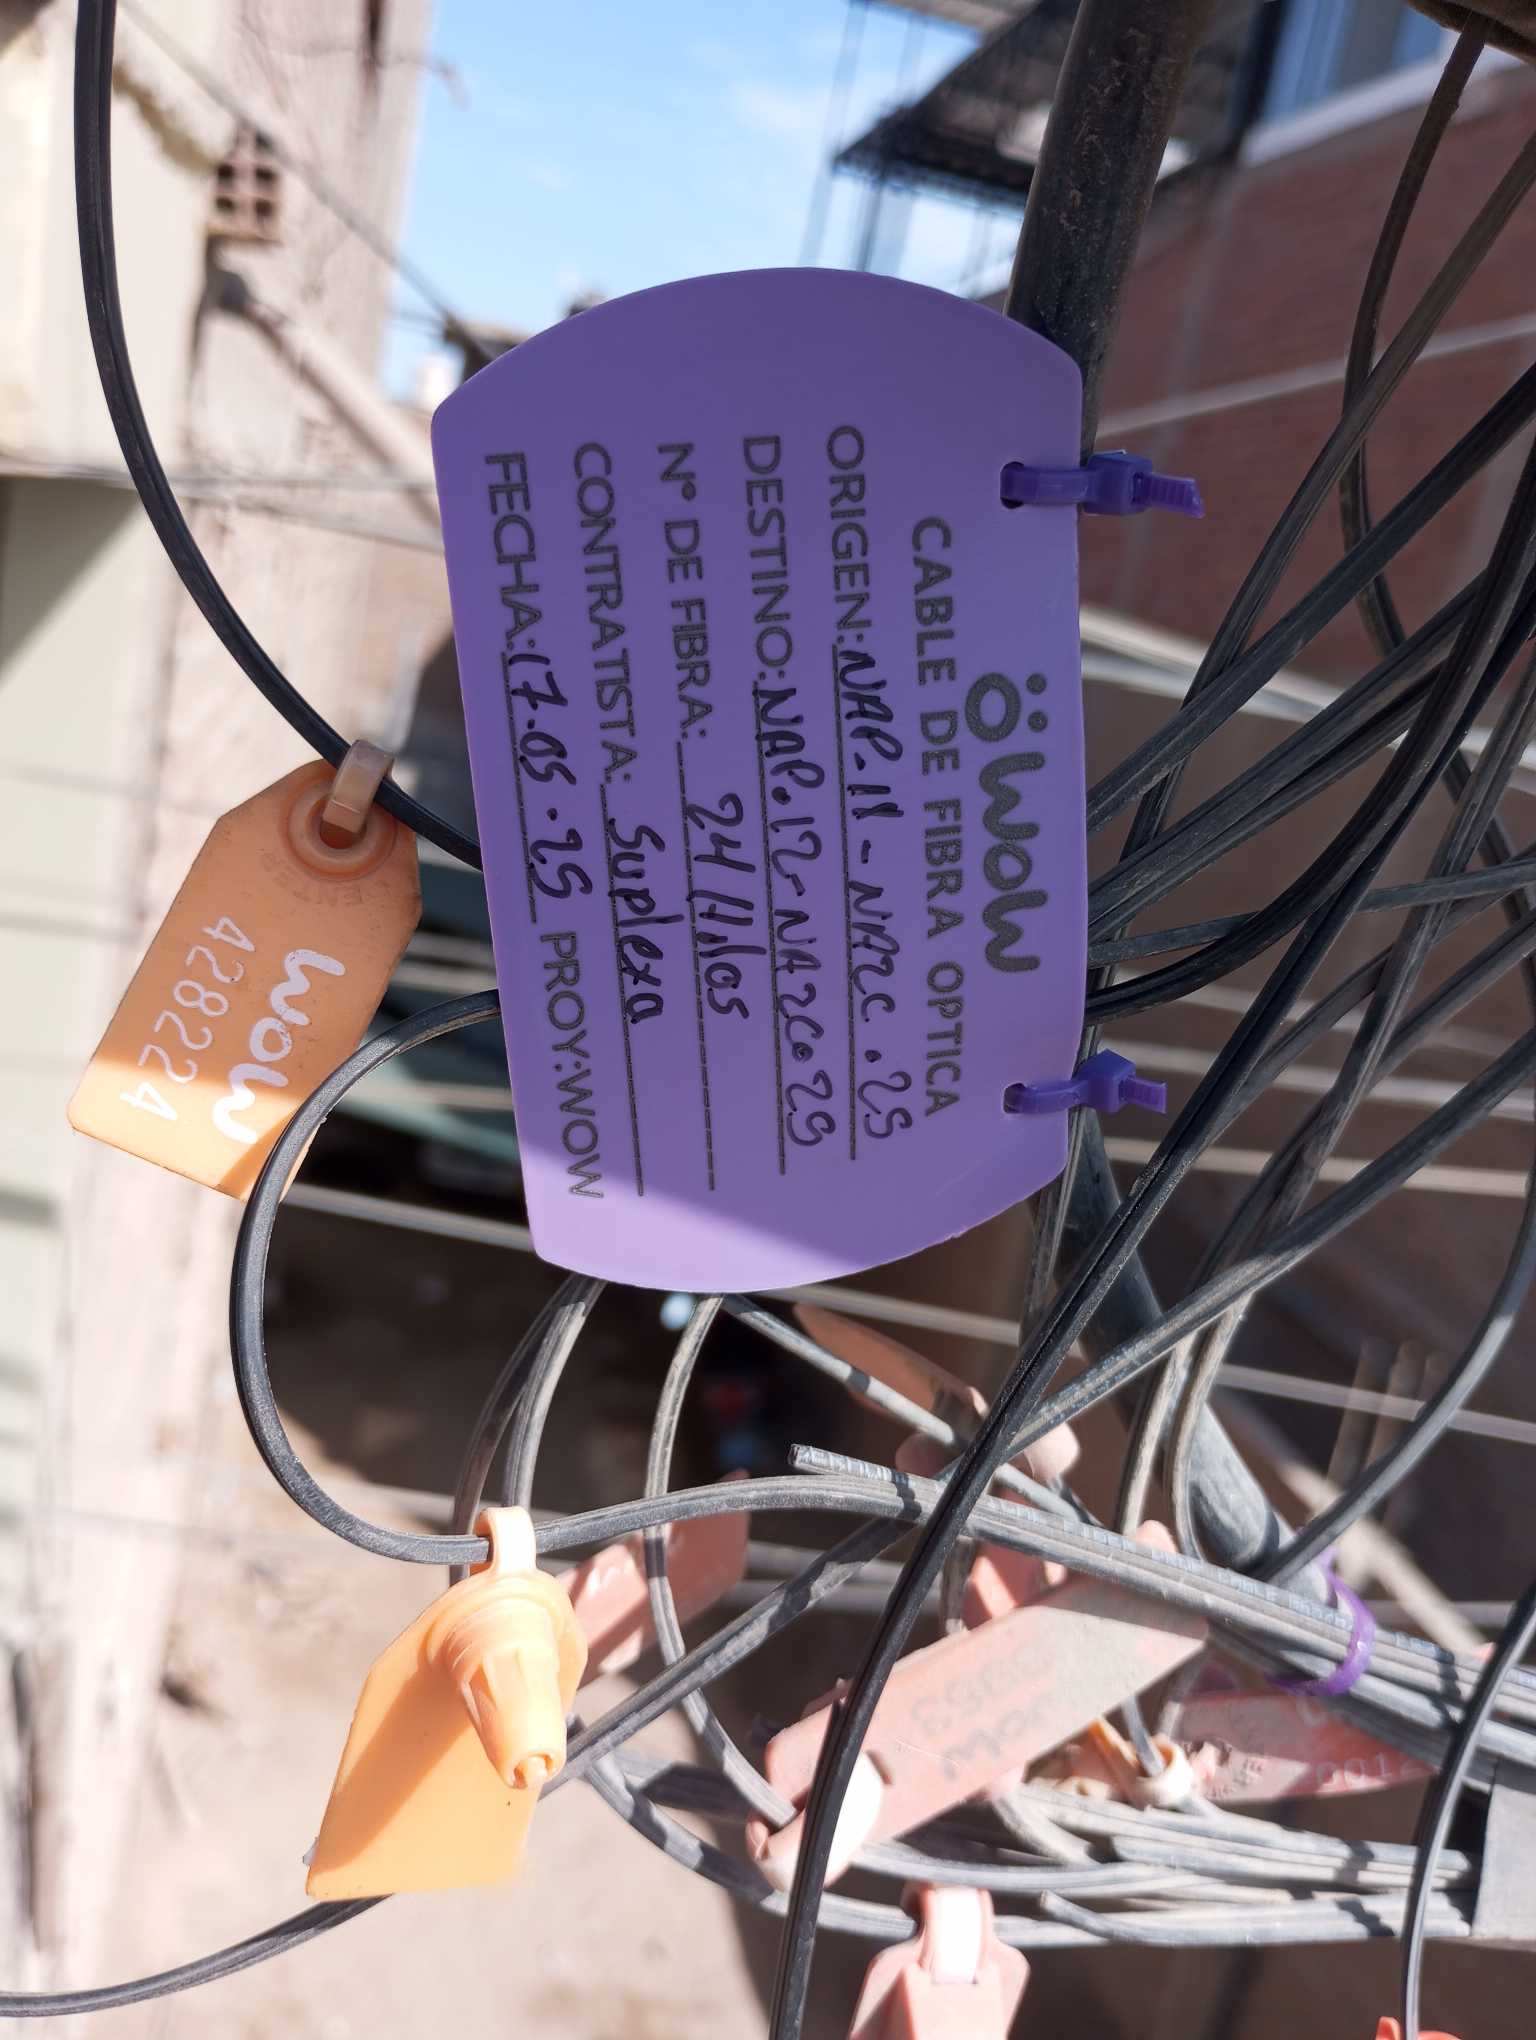 wow
CABLE DE FIBRA OPTICA
ORIGEN: NAP.11 - NAZC.25
DESTINO: NAP.12 - NAZC.25
N° DE FIBRA: 24 Hilos
CONTRATISTA: Suplexa
FECHA: 17.05.25 PROY:WOW
wow
428224